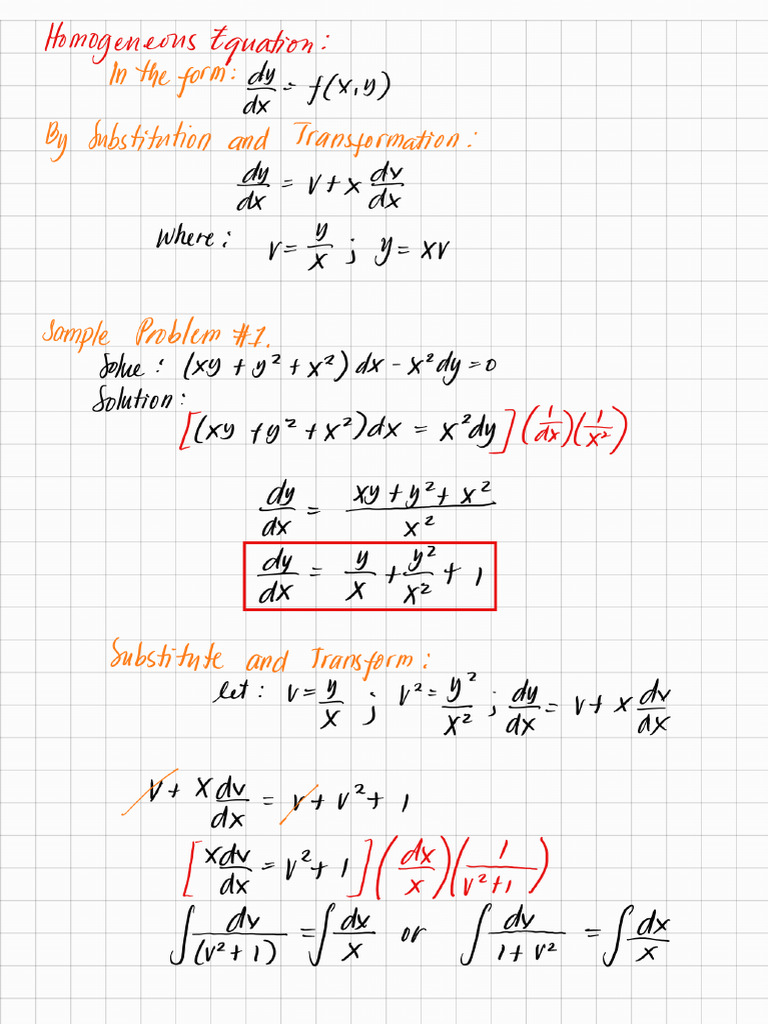 Homogeneous Equation:
In the form: dy/dx = f(x,y)
By Substitution and Transformation:
dy/dx = v + x dv/dx
Where: v = y/x ; y = xv
Sample Problem #1.
Solve: (xy + y² + x²) dx - x² dy = 0
Solution:
[(xy + y² + x²)dx = x²dy] (1/dx)(1/x²)
dy/dx = (xy + y² + x²)/x²
dy/dx = y/x + y²/x² + 1
Substitute and Transform:
let: v = y/x ; v² = y²/x² ; dy/dx = v + x dv/dx
v + x dv/dx = v + v² + 1
[x dv/dx = v² + 1] (dx/x)(1/(v²+1))
∫ dv/(v² + 1) = ∫ dx/x or ∫ dv/(1 + v²) = ∫ dx/x